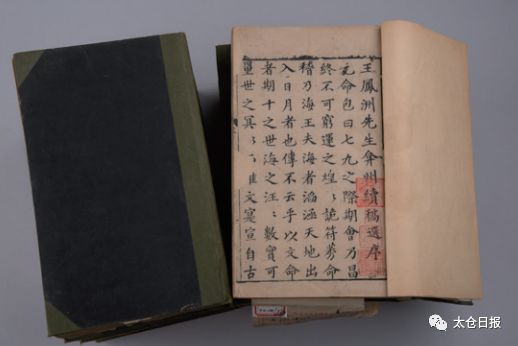 王鳳洲先生弇州續稿選序
元命包曰七九之際期會乃昌
終不可窮運之煌〻詭符葬命
稽乃海王夫海者滔涵天地出
入日月者也傳不云乎以文命
者期十之世海之汪〻數實可
量世之冥〻〻推文寔宣自古
太仓日报